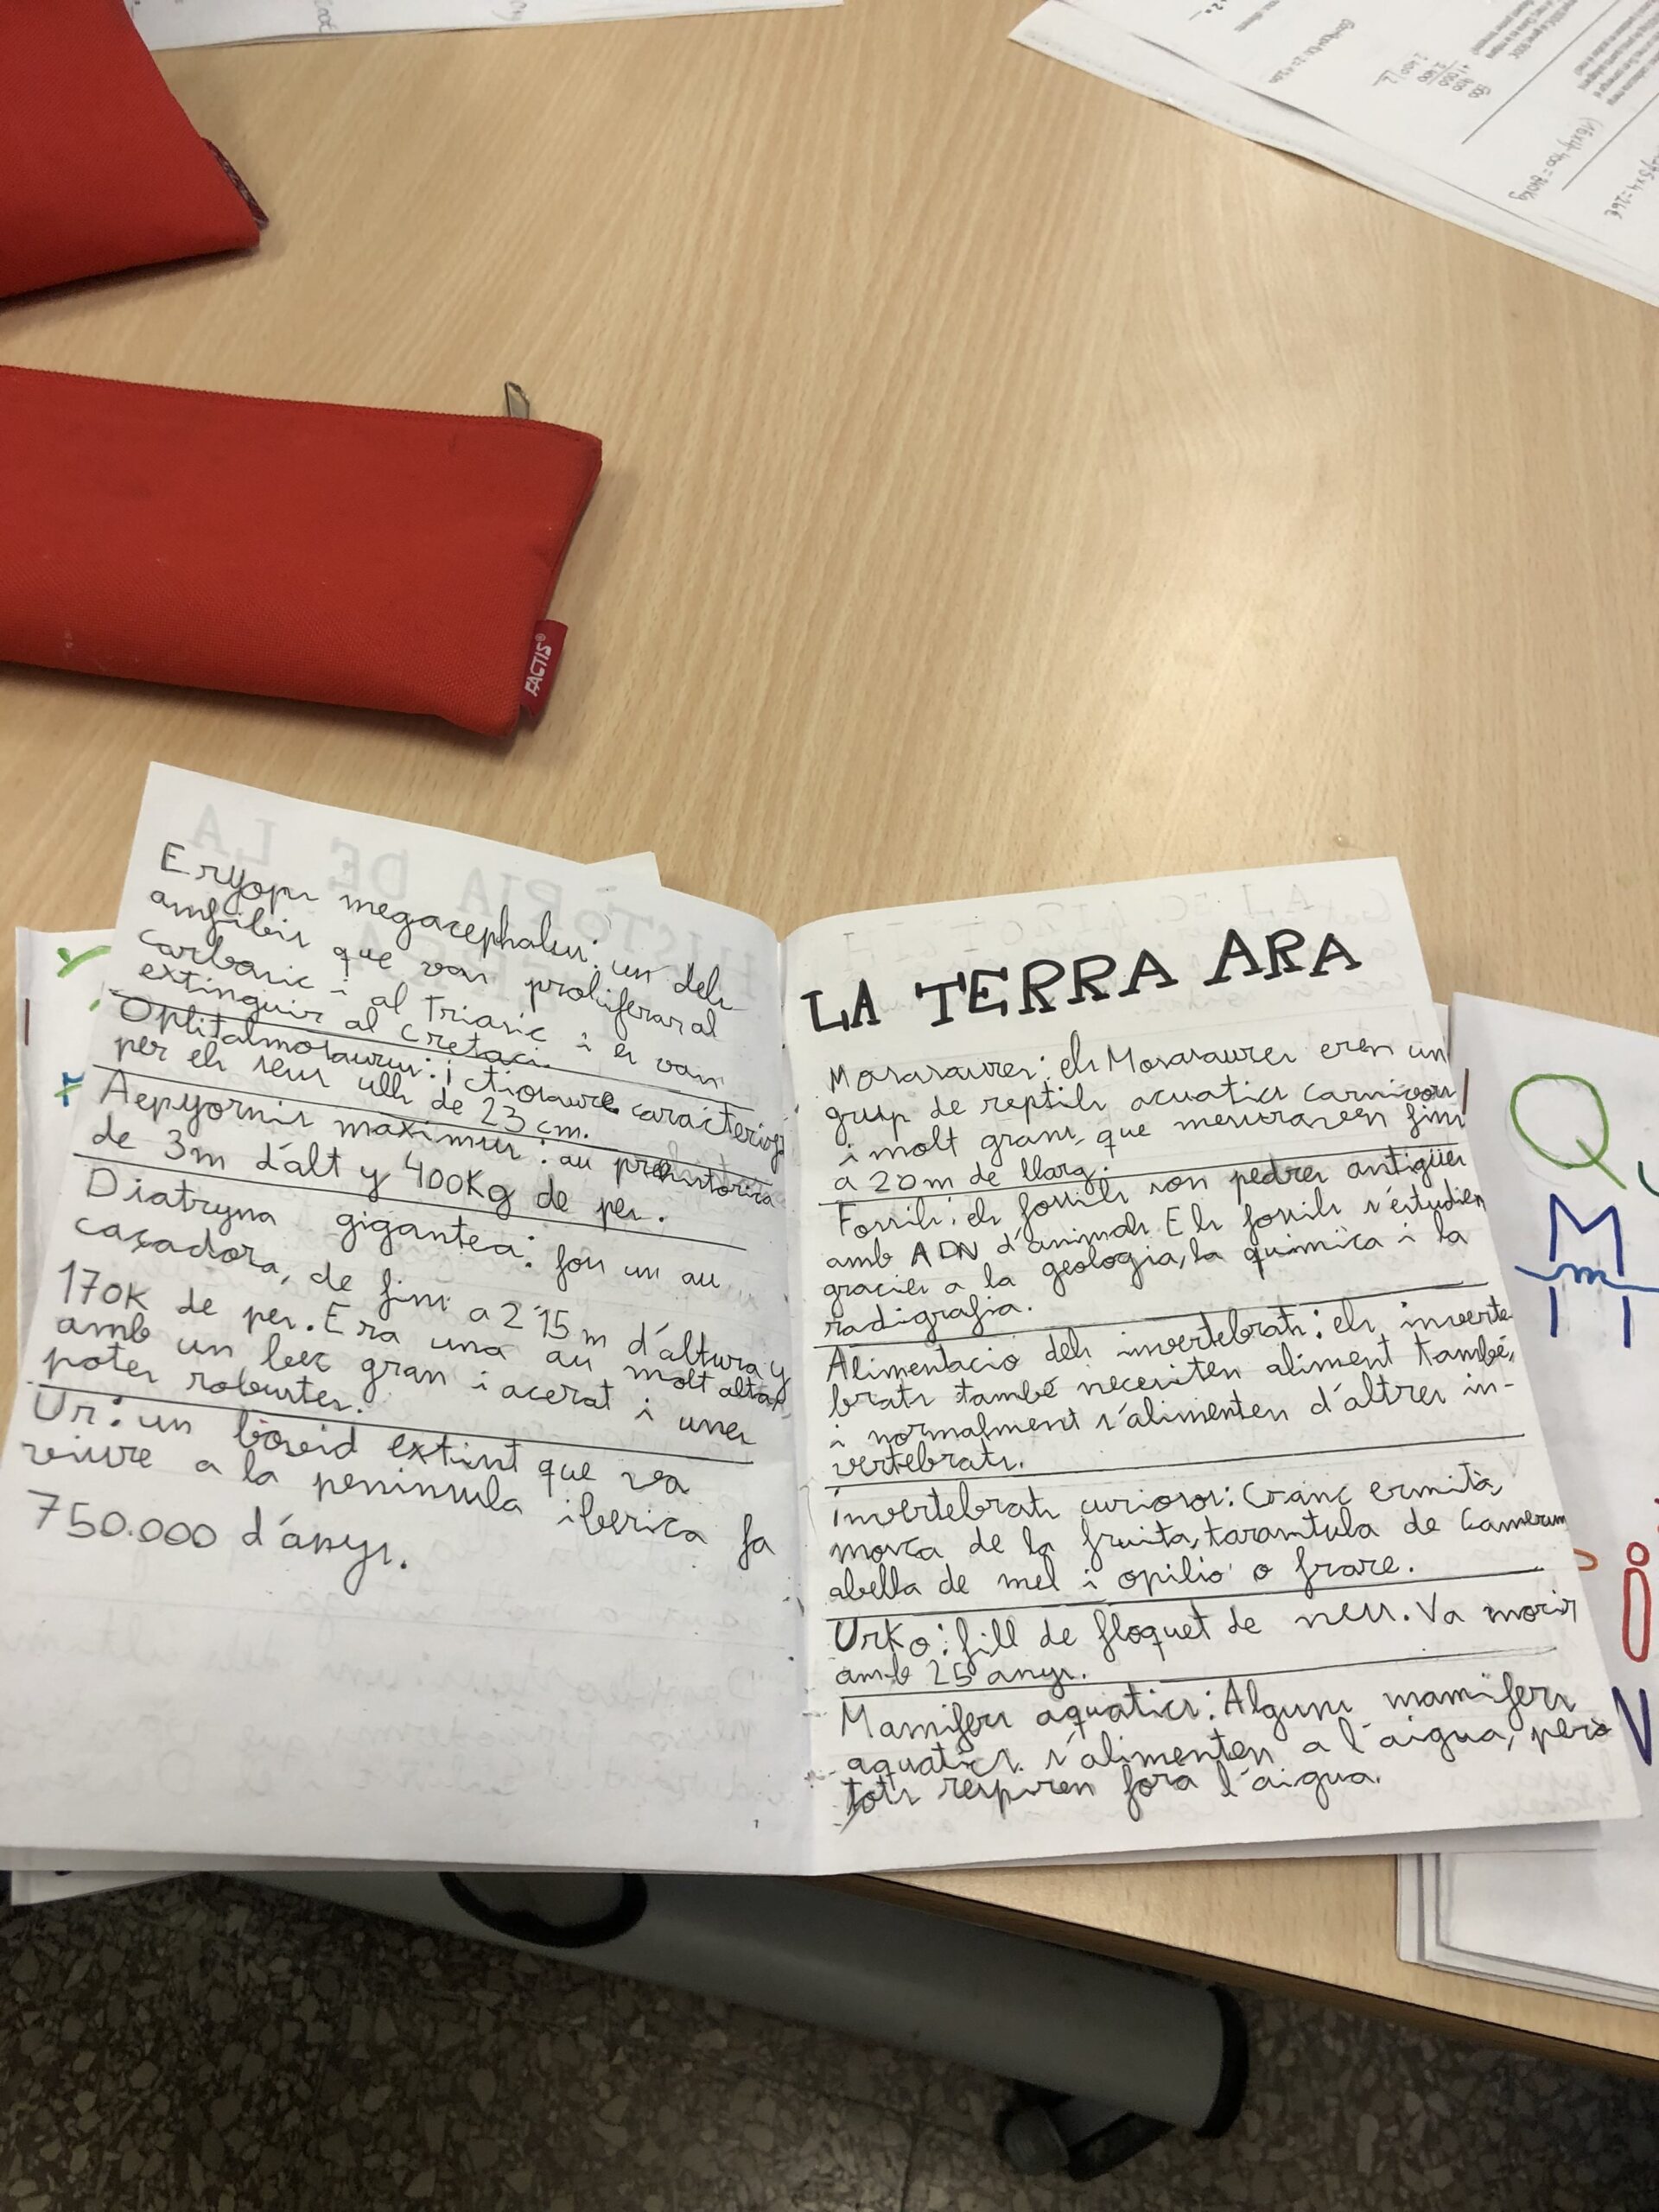 FACTIS®
Eryops megacephalus: un dels
amfibis que van proliferar al
carbonic i al Triasic i es van
extinguir al Cretaci.
Oplitalmosaurus: ictiosaure caracteritzat
per els seus ulls de 23 cm.
Aepyornis maximus: au prehistorica
de 3m d'alt y 400Kg de pes.
Diatryna gigantea: fou un au
caçadora, de fins a 2'15 m d'altura y
170K de pes. Era una au molt alta,
amb un bec gran i acerat i unes
potes robustes.
Ur: un bòvid extint que va
viure a la peninsula iberica fa
750.000 d'anys.
LA TERRA ARA
Mosasaures: els Mosasaures eren un
grup de reptils acuatics carnivors
i molt grans, que mesuraven fins
a 20m de llarg.
Fossils: els fossils son pedres antigües
amb ADN d'animals. Els fossils s'estudien
gracies a la geologia, la quimica i la
radigrafia.
Alimentacio dels invertebrats: els inverte
brats també necesiten aliment també,
i normalment s'alimenten d'altres in-
vertebrats.
invertebrats curiosos: Cranc ermità,
mosca de la fruita, tarantula de Camerun
abella de mel i opilio o frare.
Urko: fill de floquet de neu. Va morir
amb 25 anys.
Mamifers aquatics: Alguns mamifers
aquatics s'alimenten a l'aigua, però
tots respiren fora l'aigua.